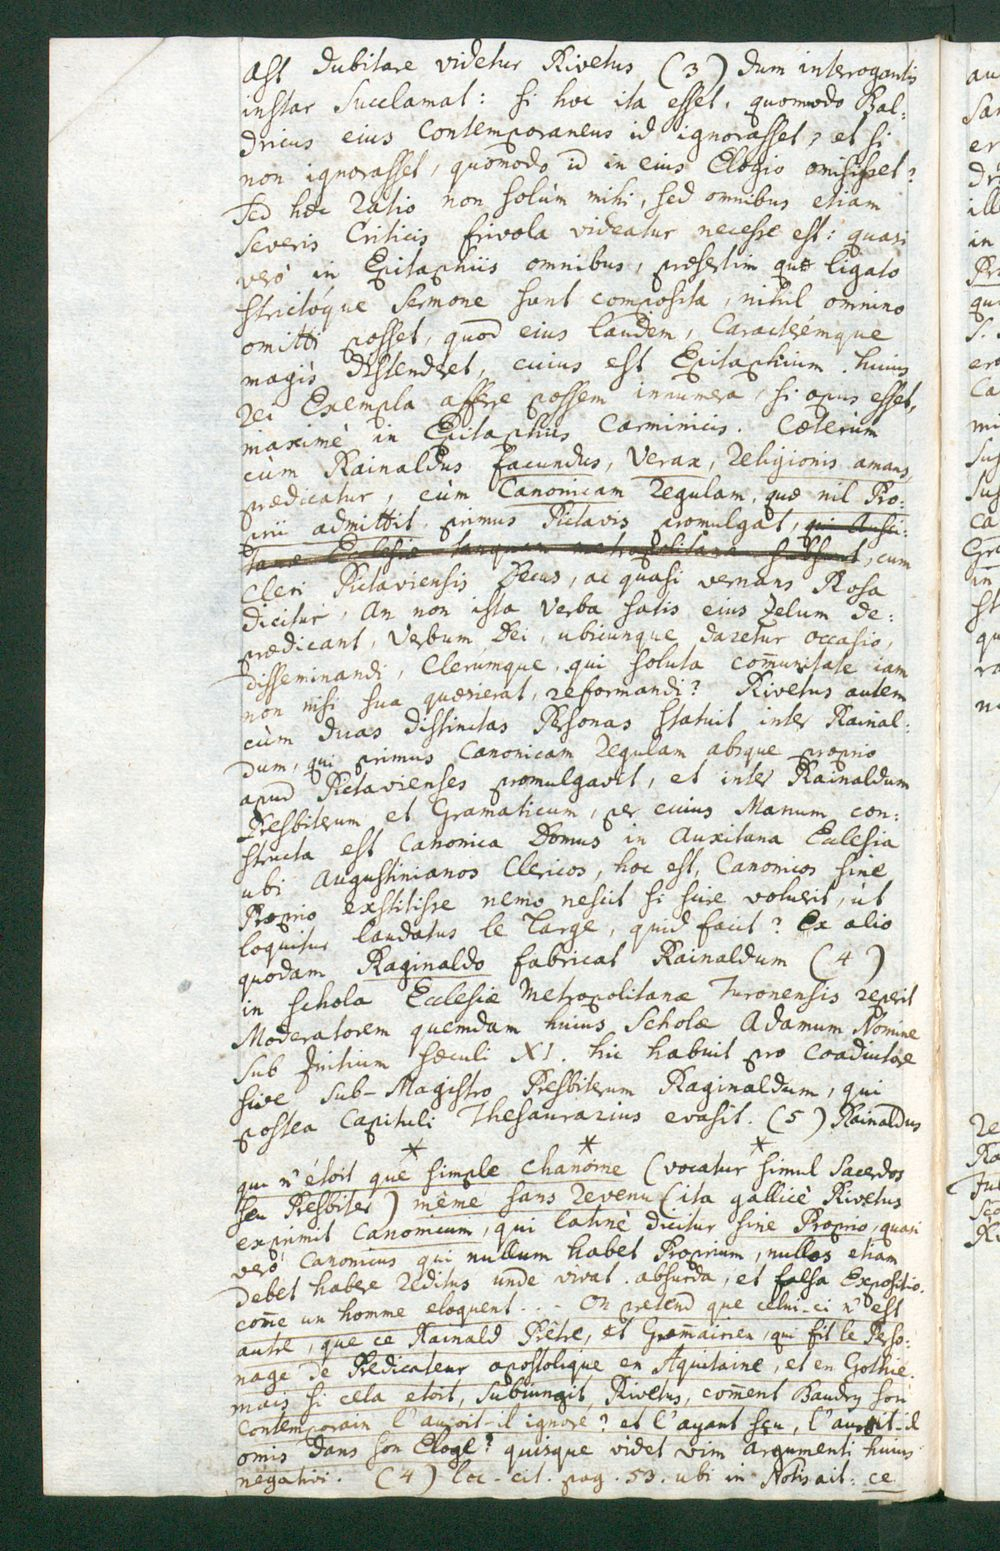 ast dubitare videtur Rivetus (3) dum interrogantis
instar succlamat: si hoc ita esset, quomodo Bal:
dricus eius contemporaneus id ignorasset, et si
non ignorasset, quomodo id in eius Elogio omisisset?
sed hæc ratio non solùm mihi, sed omnibus etiam
severis Criticis frivola videatur necesse est: quasi
verò in Epitaphiis omnibus, præsertim quæ ligato
strictoque sermone sunt composita, nihil omnino
omitti posset, quod eius laudem, Caracterémque
magis distenderet, cuius est Epitaphium. huius
rei Exempla afferre possem innumera, si opus esset,
maximè in Epitaphiis Carminicis. Cæterùm
cùm Rainaldus facundus, verax, religionis amans,
prædicatur, cùm Canonicam regulam, quæ nil Pro:
prii admittit, primus Pictavis promulgat, qui Ausci:
tanæ Ecclesiæ tanquam metropolitanæ subsunt, cum
Cleri Pictaviensis Decus, ac quasi vernans Rosa
dicitur, An non ista verba satis eius Zelum de:
prædicant, Verbum Dei, ubicunque daretur occasio,
disseminandi, Clerumque, qui soluta com̄unitate iam
non nisi sua quæsierat, reformandi? Rivetus autem
cùm duas distinctas Personas statuit inter Rainal:
dum, qui primus Canonicam regulam absque proprio
apud Pictavienses promulgavit, et inter Rainaldum
Presbiterum et Gramaticum, per cuius Manum con:
structa est Canonica Domus in Auxitana Ecclesia
ubi Augustinianos Clericos, hoc est, Canonicos sine
Proprio exstitisse nemo nescit si scire voluerit, ùt
loquitur laudatus le Large, quid facit? Ex alio
quodam Raginaldo fabricat Rainaldum (4)
in schola Ecclesiæ Metropolitanæ Turonensis reperit
Moderatorem quemdam huius Scholæ Adamum Nomine
sub Initium sæculi XI. hic habuit pro Coadiutore
sive Sub-Magistro Presbiterum Raginaldum, qui
postea Capituli Thesaurarius evasit. (5) Rainaldus
* * *
qui n'étoit que simple chanoine (vocatur simul Sacerdos
seu Presbiter) même sans revenu (ita gallicè Rivetus
exprimit Canonicum, qui latinè dicitur sine Proprio, quasi
verò Canonicus qui nullum habet Proprium, nullos etiam
debet habere reditus unde vivat. absurda, et falsa Expositio.
com̄e un homme eloquent... - On pretend que celui-ci n'est
autre, que ce Rainald Prêtre, et Gram̄airien, qui fit le Perso:
nage de Prédicateur apostolique en Aquitaine, et en Gothie.
mais si cela etoit, subiungit Rivetus, com̄ent Baudry son
contemporain l'auroit-il ignoré? et l'ayant sçu, l'auroit-il
omis dans son Eloge? quisque videt vim argumenti huius
negativi. (4) loc. cit. pag. 53. ubi in Notis ait: ce